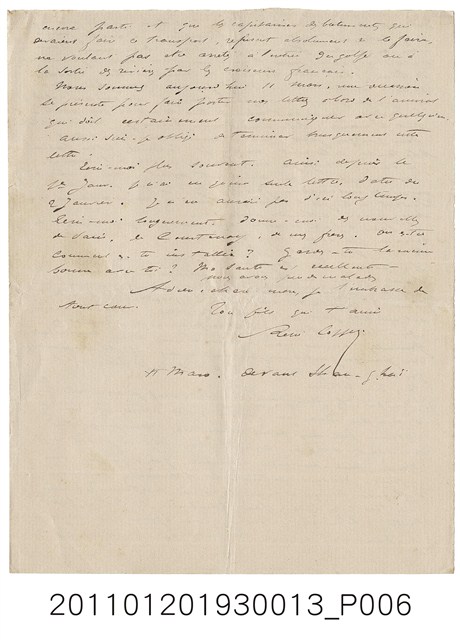 encore partis et que les capitaines des bâtiments qui
avaient fait ce transport, refusent absolument à le faire,
ne voulant pas être arrêtés à l'entrée du golfe ou à
la sortie des rivières par les croiseurs français.
Nous sommes aujourd'hui 11 Mars, une occasion
se présente pour faire porter nos lettres
qui doit certainement communiquer avec quelqu'un
aussi suis-je obligé de terminer brusquement cette
lettre.
Ecris-moi plus souvent. Ainsi depuis le
1er Janv. je n'ai eu qu'une seule lettre, datée du
2 Janvier. Je n'en aurai pas d'ici longtemps.
Ecris-moi longuement, donne-moi des nouvelles
de Paris, de Courtenay, de mes frères. Où es-tu
comment es-tu installée ? Gardes-tu la même
bonne avec toi ? Ma santé est excellente -
nous avons peu de malades
Adieu, chère mère, je t'embrasse de
tout cœur.
Ton fils qui t'aime
René
11 Mars. devant Shang-haï
201101201930013_P006